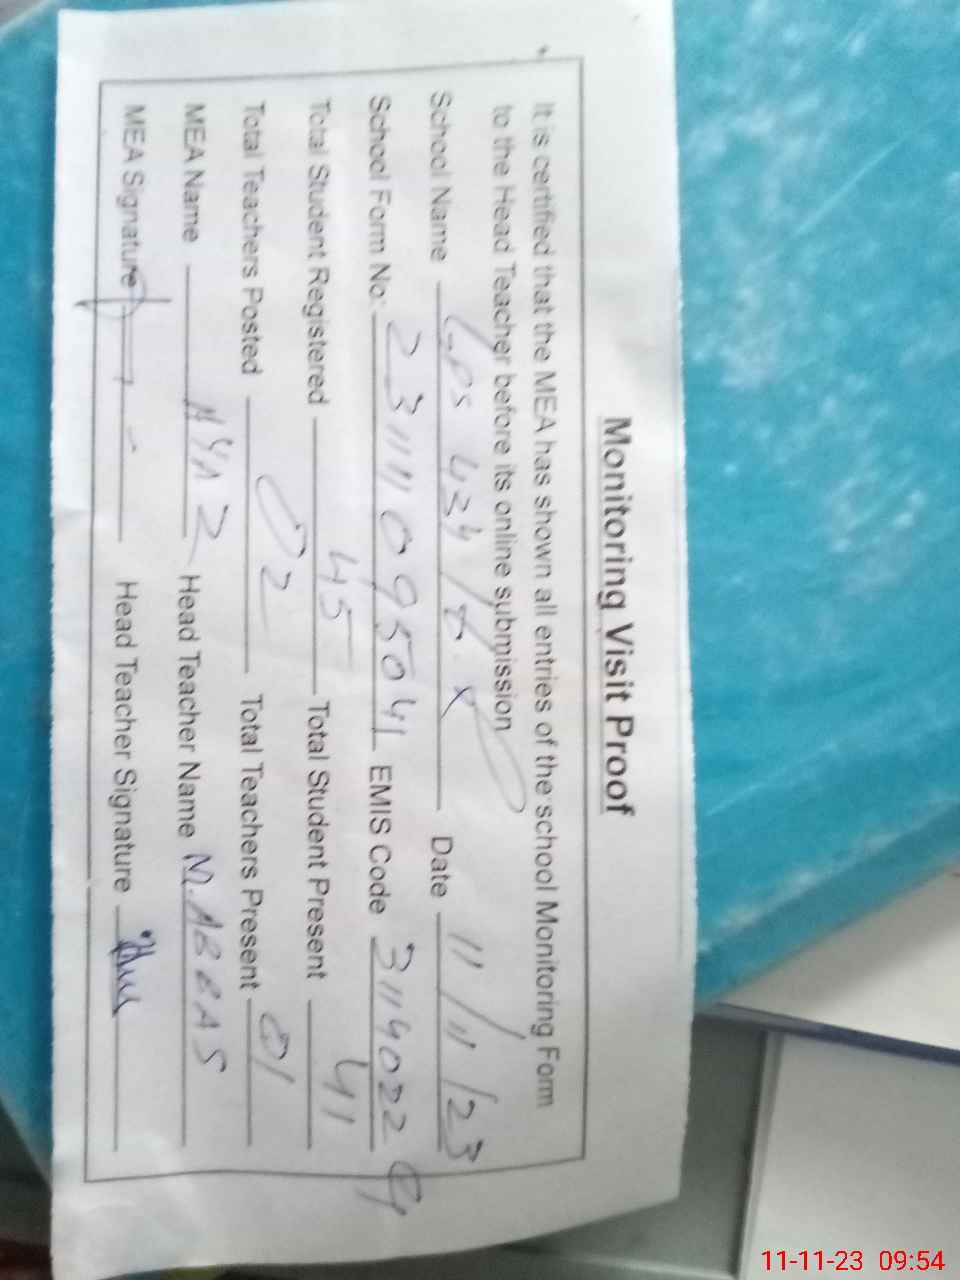 Monitoring Visit Proof
It is certified that the MEA has shown all entries of the school Monitoring Form
to the Head Teacher before its online submission
School Name GPS 424/6.R Date 11/11/23
School Form No: 231111095041 EMIS Code 3114022
Total Student Registered 45 Total Student Present 41
Total Teachers Posted 02 Total Teachers Present 01
MEA Name AYAZ Head Teacher Name M.ABBAS
MEA Signature Head Teacher Signature
11-11-23 09:54